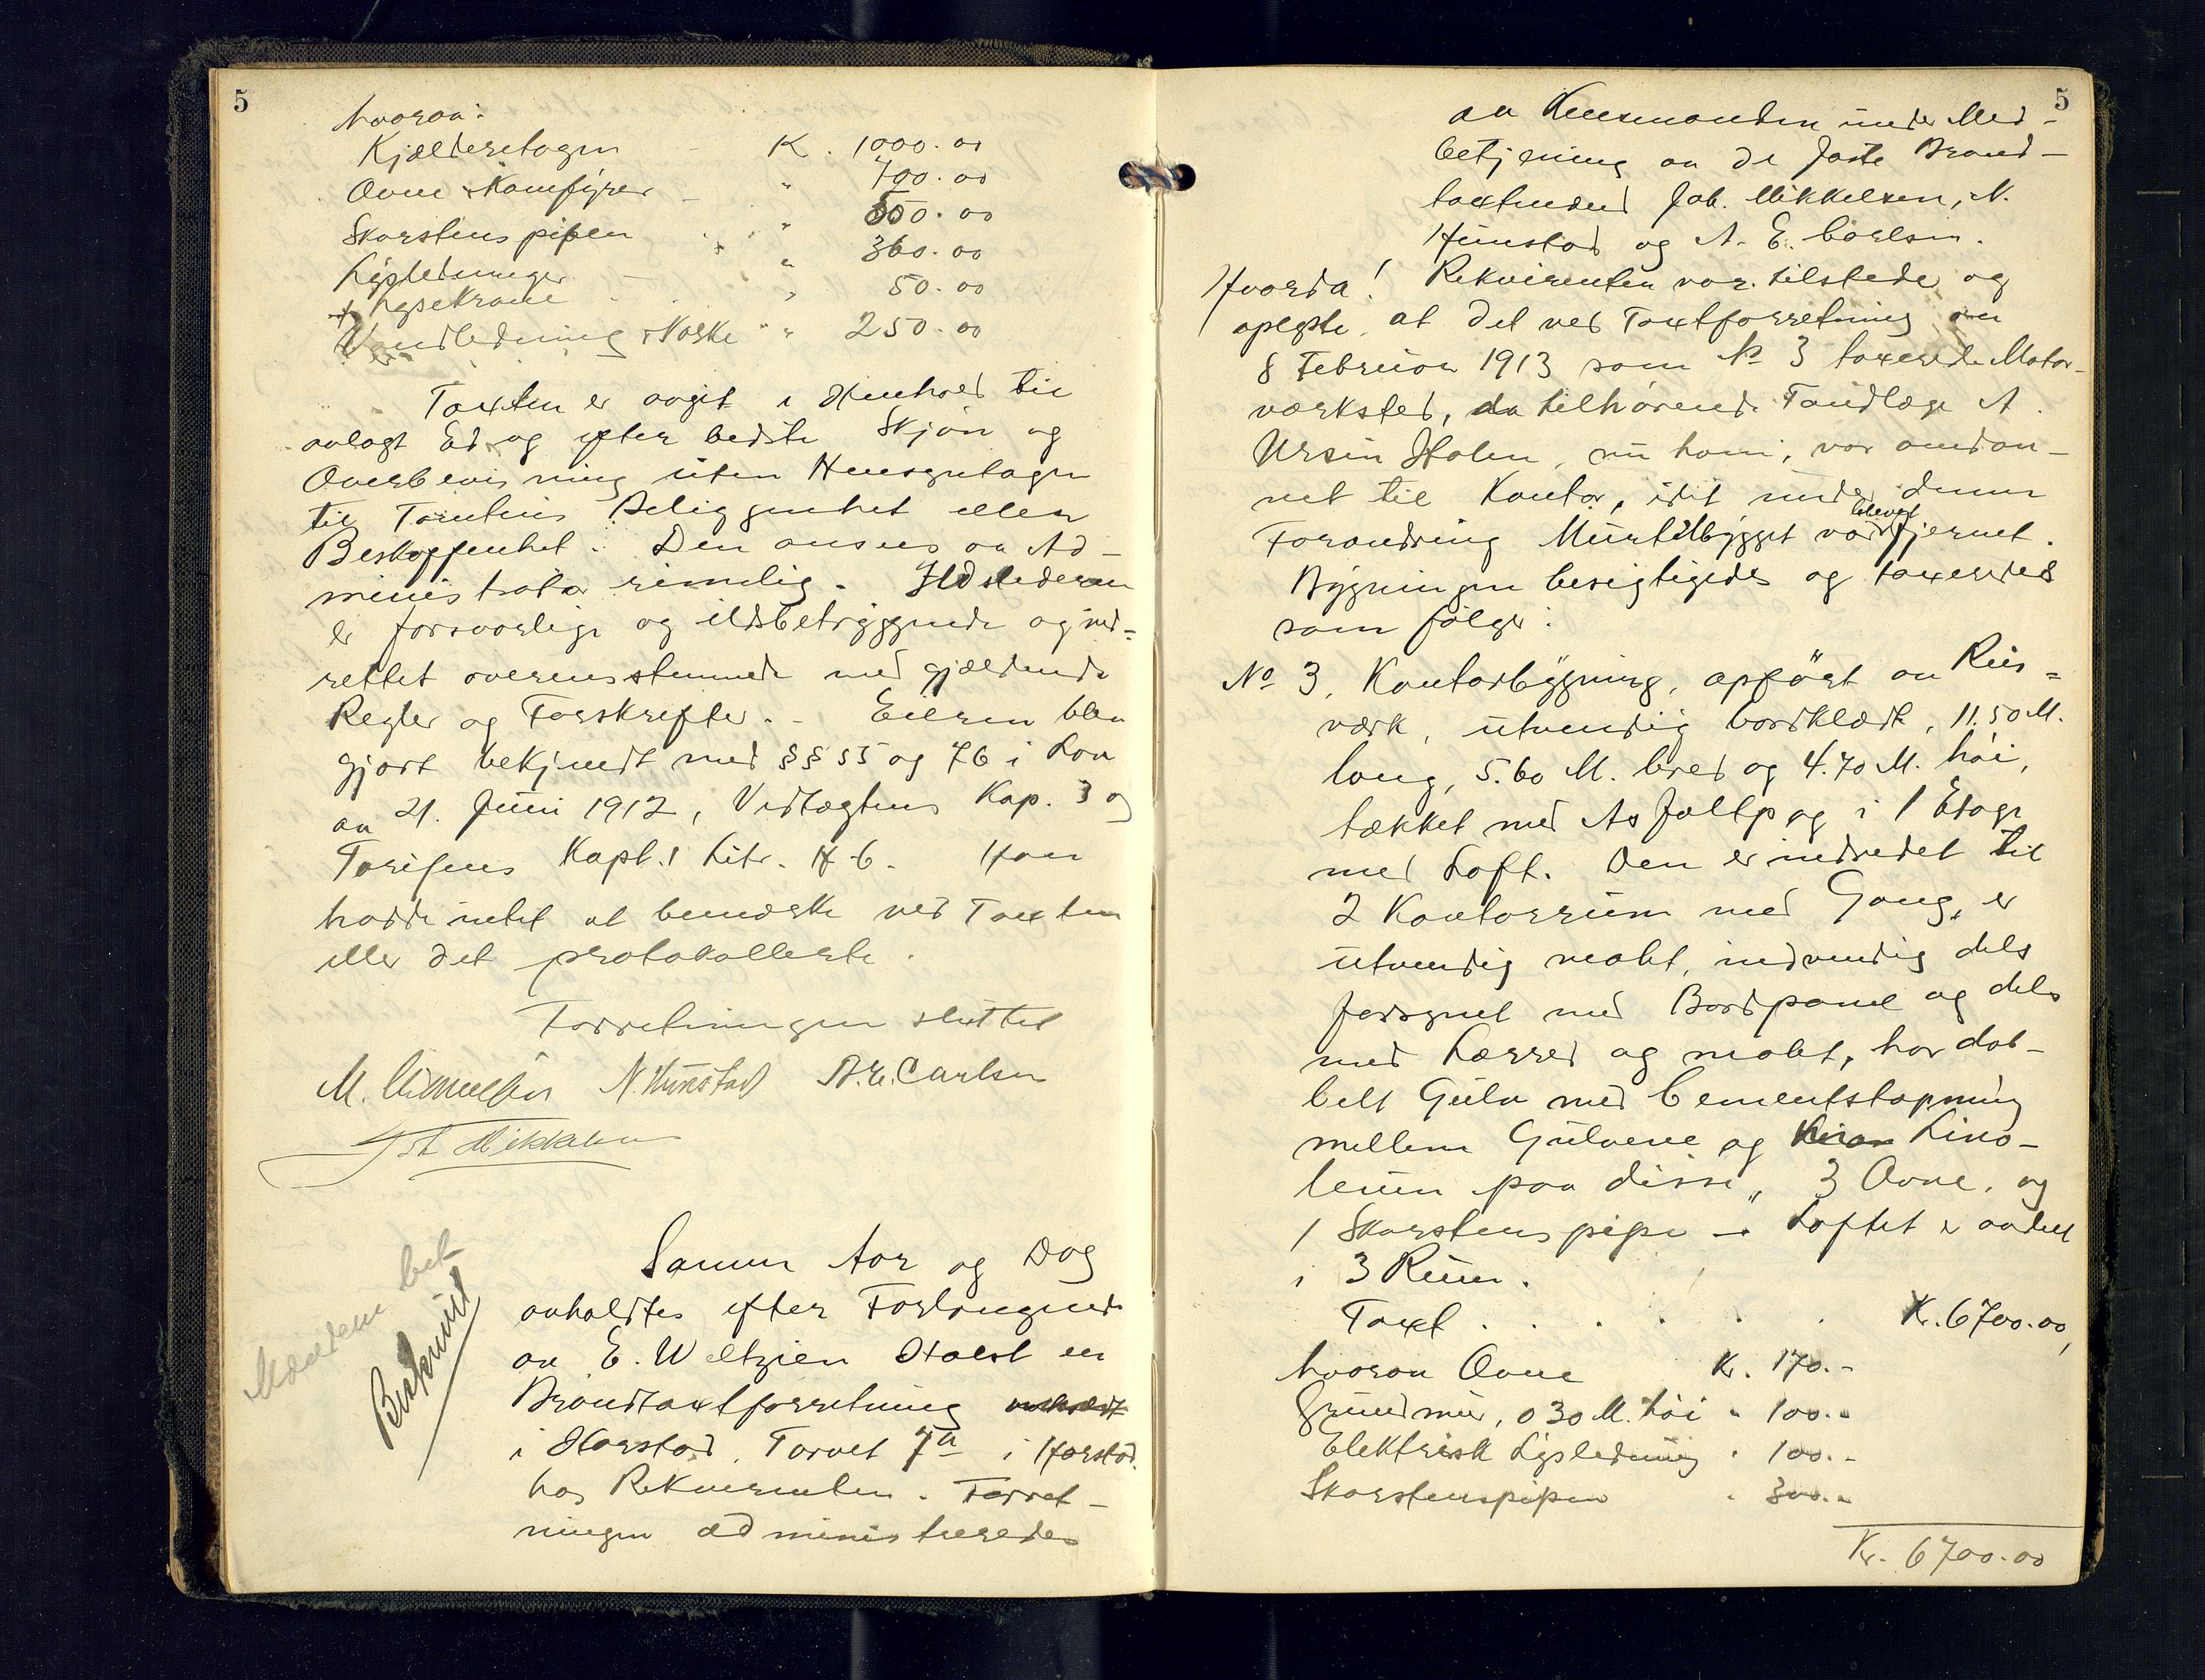 5
hvorav:
Kjælderetagen - K. 1000.00
Ovne & Komfyrer - " 700.00
Skorstenspipen " 550.00
Lysledninger - " 360.00
+ Lysekrone " 50.00
Vandledning & Vaske " " 250.00
Taxten er avgit i Henhold til
avlagt Ed og efter bedste Skjøn og
Overbevisning uten Hensyntagen
til Tomtens Beliggenhet eller
Beskaffenhet. Den ansees av Ad-
ministrator rimelig. Ildstederne
er forsvarlige og ildsbetryggende og ind-
rettet overensstemmende med gjældende
Regler og Forskrifter. - Eieren blev
gjort bekjendt med §§ 55 og 76 i Lov
av 21. Juni 1912, Vedtægtens Kap. 3 og
Tarifens Kapt. 1 Litr. H-6. Han
hadde intet at bemærke ved Taxten
eller det protokollerte.
Forretningen sluttet
M. N. Hunstad A. E. Carlsen
Joh Mikkelsen
Samme Aar og Dag
avholdtes efter Forlangende
av E. Weltzien Holst en
Brandtaxtforretning
i Harstad, Torvet 7a i Harstad
hos Rekvirenten. Forret-
ningen administreredes
Mændene bet
5
av Lensmanden under Med-
betjening av de faste Brand-
taxtmænd Joh. Mikkelsen, N.
Hunstad og A. E. Carlsen.
Hvorda! Rekvirenten var tilstede og
oplyste at det ved Taxtforretning av
8 Februar 1913 som No 3 taxerede Motor-
værksted, da tilhørende Tandlæge A.
Ursin Holm, nu ham, var omdan-
net til Kontor, idet under denne
Forandring Murtilbygget var blevet fjernet.
Bygningen besigtigedes og taxeredes
som følger:
No 3. Kontorbygning, opført av Reis-
værk, utvendig bordklædt, 11.50 M.
lang, 5.60 M. bred og 4.70 M. høi,
tækket med Asfaltp og i 1 Etage
med Loft. Den er indredet til
2 Kontorrum med Gang, er
utvendig malet, indvendig dels
forsynet med Bordpanel og dels
med Lærred og malet, har dob-
belt Gulv med Cementstøpning
mellem Gulvene og Lino-
leum paa disse, 3 Ovne, og
1 Skorstenspipe - Loftet er avdelt
i 3 Rum.
Taxt . . . . . . Kr. 6700.00,
hvorav Ovne Kr. 170.-
Grundmur, 0 30 M. høi " 100.-
Elektrisk Lysledning " 100.-
Skorstenspipen " 300.-
Kr. 6700.00